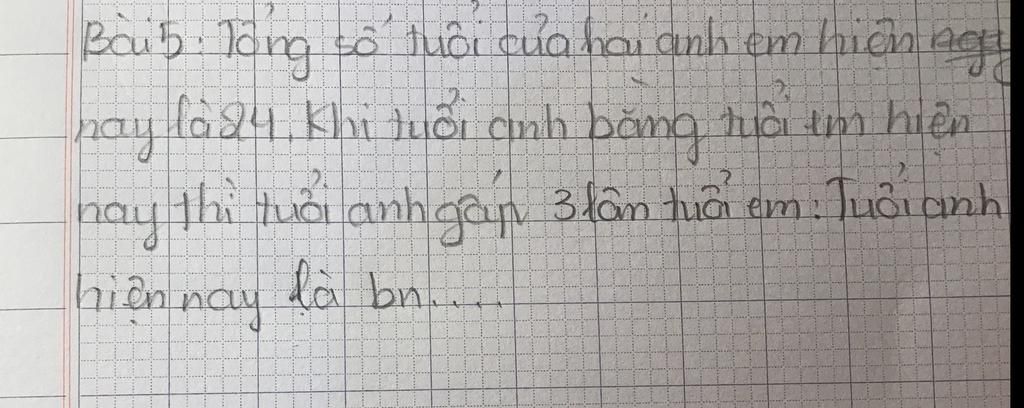 Bài 5: Tổng số tuổi của hai anh em hiện
nay là 24. Khi tuổi anh bằng tuổi em hiện
nay thì tuổi anh gấp 3 lần tuổi em. Tuổi anh
hiện nay là bn....